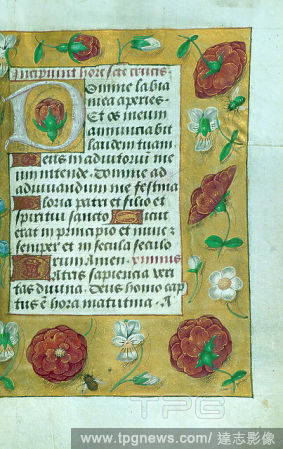 Incipiunt hore scte crucis
Domine labia
mea aperies.
Et os meum
annunciabit
laudem tuam
Deus in adiutoriū me
um intende. Domne ad
adiuvandum me festina
Gloria patri et filio et
spiritui sancto Sicut
erat in principio et nunc z
semper et in secula seculo
rum Amen. ximnus
Patris sapiencia veri
tas divina. Deus homo cap
tus ē hora matutina. A
TPG
www.tpgnews.com/達志影像